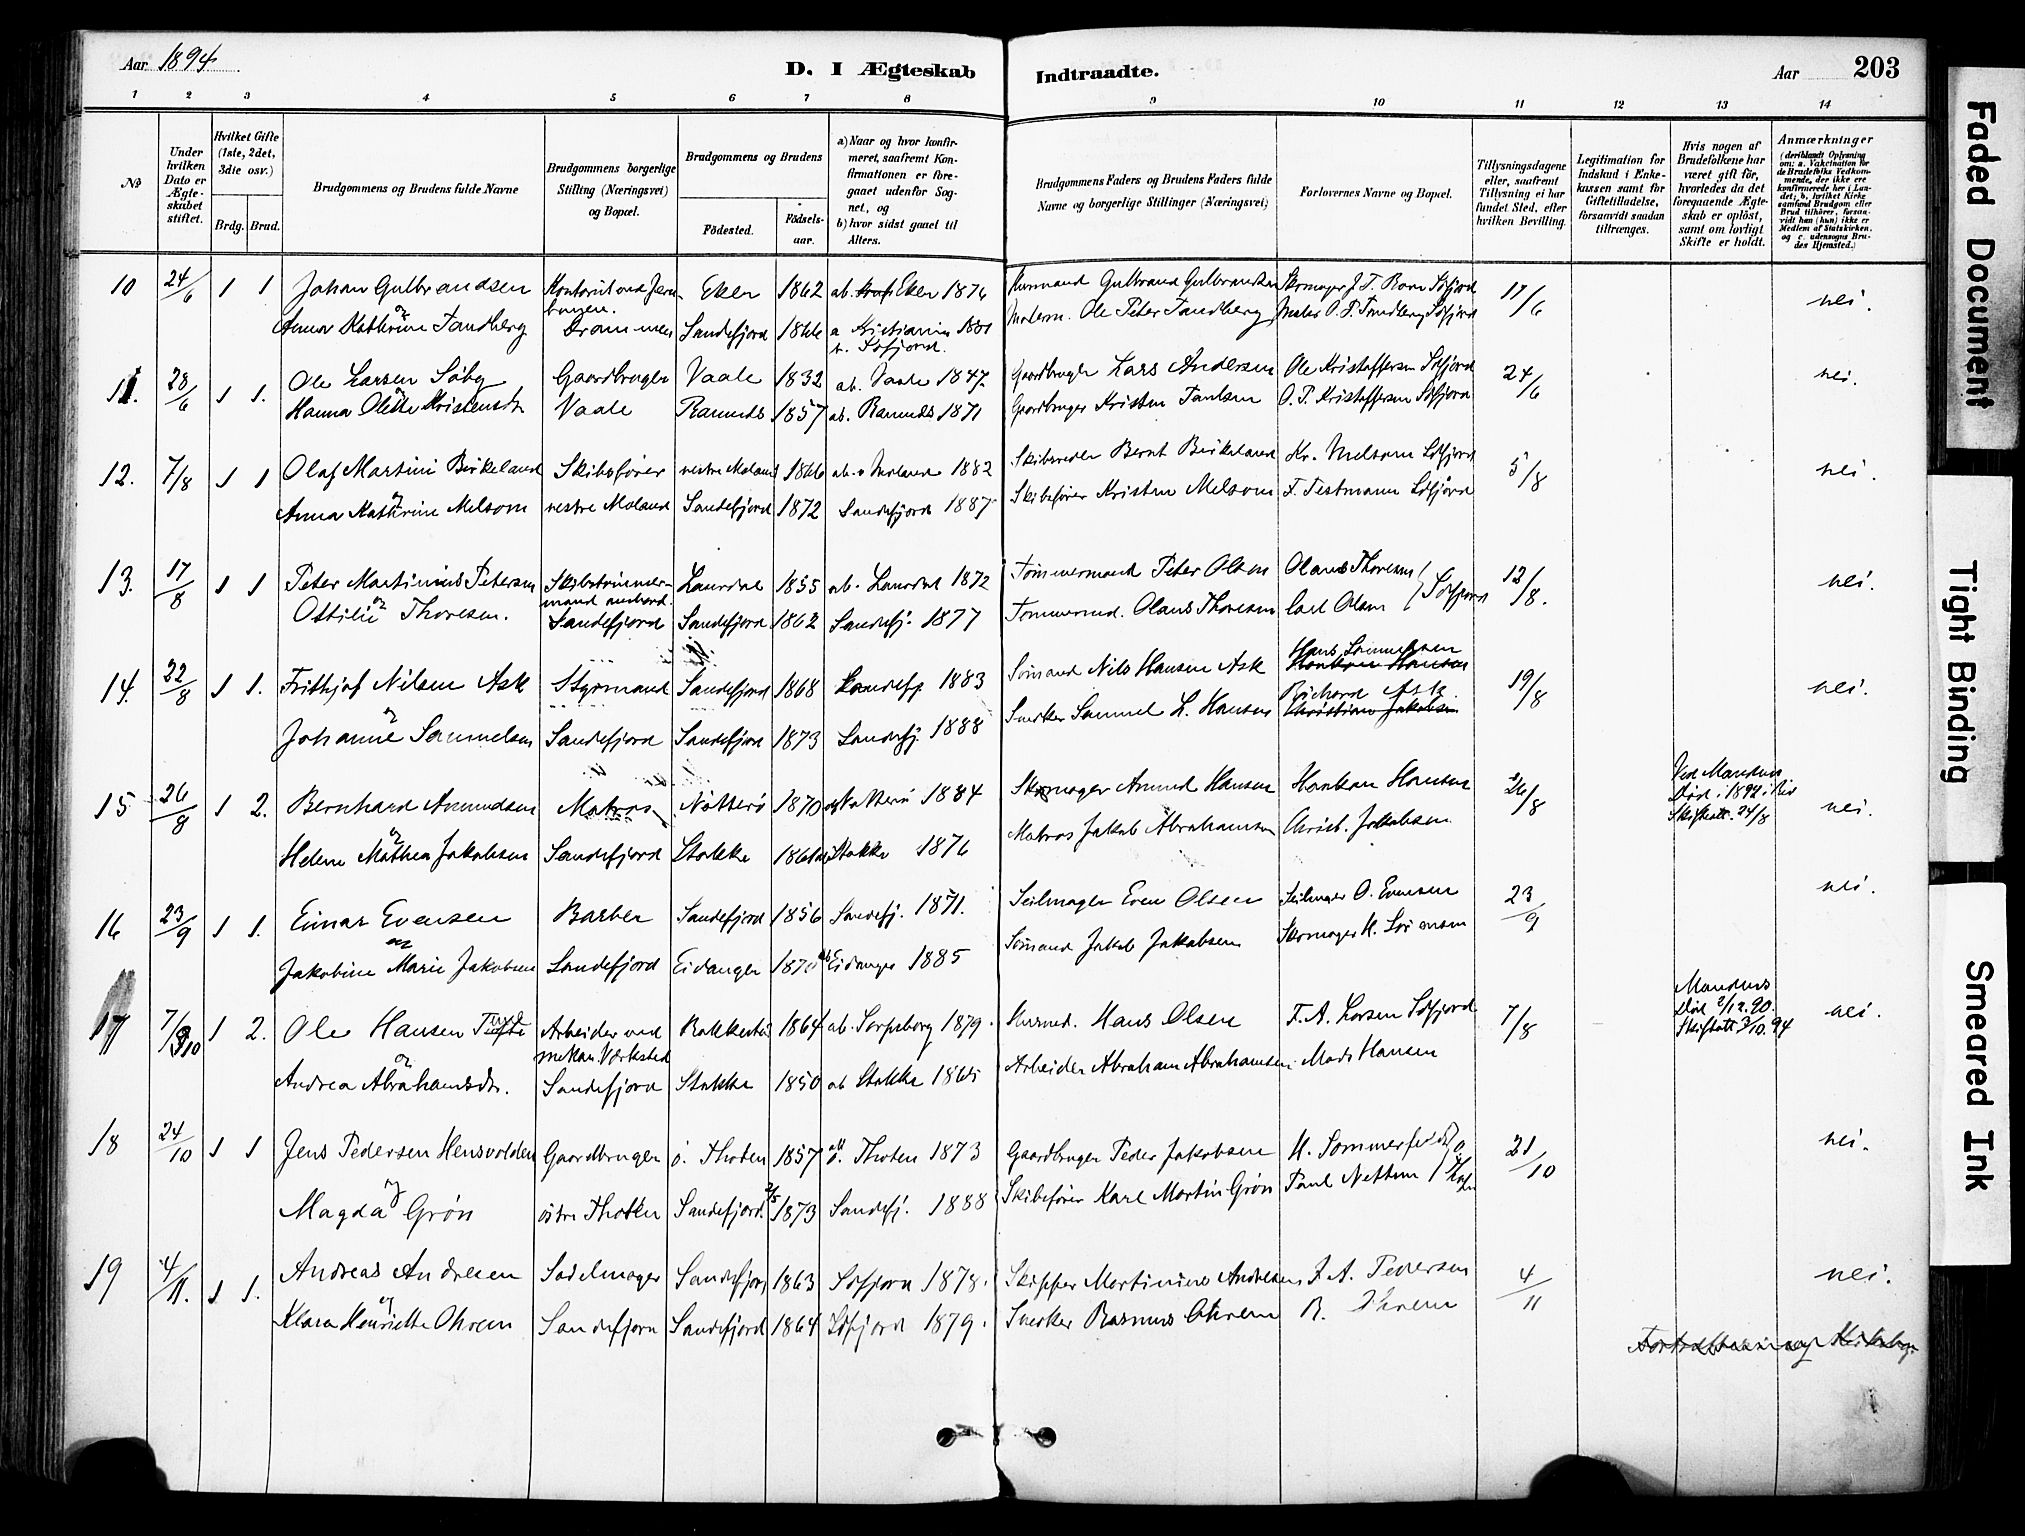 Aar 1894
D. I Ægteskab
Indtraadte.
Aar
203
1 2 3 4 5 6 7 8 9 10 11 12 13 14
No
Under hvilken Dato er Ægteskabet stiftet.
Hvilket Gifte (1ste, 2det, 3die osv.)
Brdg. Brud.
Brudgommens og Brudens fulde Navne
Brudgommens borgerlige Stilling (Næringsvei) og Bopæl.
Brudgommens og Brudens
Födested.
Födselsaar.
a) Naar og hvor konfirmeret, saafremt Konfirmationen er foregaaet udenfor Sognet, og
b) hvor sidst gaaet til Alters.
Brudgommens Faders og Brudens Faders fulde Navne og borgerlige Stillinger (Næringsvei)
Forlovernes Navne og Bopæl.
Tillysningsdagene eller, saafremt Tillysning ei har fundet Sted, efter hvilken Bevilling.
Legitimation for Indskud i Enkekassen samt for Giftetilladelse, forsaavidt saadan tiltrænges.
Hvis nogen af Brudefolkene har været gift för, hvorledes da det foregaaende Ægteskab er oplöst, samt om lovligt Skifte er holdt.
Anmærkninger (deriblandt Oplysning om: a. Vakcination for de Brudefolks Vedkommende, der ikke ere konfirmerede her i Landet; b. hvilket Kirkesamfund Brudgom eller Brud tilhörer, forsaavidt han (hun) ikke er Medlem af Statskirken. og c. udensogns Brudes Hjemsted.)
10 24/6 1 1. Johan Gulbrandsen Kontorist ved Jernbanen. Eker 1862 ab. Eker 1876 Husmand Gulbrand Gulbrandsen Skomager J. T. Sdfjord 17/6 nei.
og
Anna Kathrine Tandberg Drammen Sandefjord 1866 a Kristiania b. Sdfjord. Malerm. Ole Peter Tandberg Maler O. T. Tandberg Sdfjord
11. 28/6 1 1. Ole Larsen Söby Gaardbruger Vaale 1832 ab. Vaale 1847 Gaardbruger Lars Andersen Ole Kristoffersen Sdfjord 24/6 nei.
og
Hanna Olette Kristensdr Vaale Ramnes 1857 ab. Ramnes 1871 Gaardbruger Kristen Paulsen O. P. Kristoffersen Sdfjord
12. 7/8 1 1 Olaf Martin Birkeland Skibsfører vestre Moland 1866 ab. v Moland 1882 Skibsreder Bernt Birkeland Kr. Melsom Sdfjord 5/8 nei.
og
Anna Kathrine Melsom vestre Moland Sandefjord 1872 Sandefjord 1887 Skibsfører Kristen Melsom F. Testmann Sdfjord
13. 17/8 1 1 Peter Martinius Petersen Skibstømmermand Laurdal 1855 ab. Laurdal 1872 Tømmermand Peter Olsen Olaus Thoresen 12/8. nei.
og
Ottilie Thoresen. Sandefjord Sandefjord 1862 Sandefj. 1877 Tømmermd. Olaus Thoresen Carl Olsen Sdfjord
14. 22/8 1 1. Frithjof Nilsen Ask Styrmand Sandefjord 1868 Sandefj. 1883 Sømand Nils Hansen Ask Hans Samuelsen Haakon Hansen 19/8 nei.
og
Johanne Samuelsen Sandefjord Sandefjord 1873 Sandefj. 1888 Snedker Samuel L. Hansen Richard Ask. Christian Jakobsen
15 26/8 1 2. Bernhard Amundsen Matros Nötterö 1870 Nötterö 1884 Skomager Amund Hansen Haakon Hansen 26/8 Ved Mandens Död i 1892 Skifteatt. 24/8 nei.
og
Helene Mathea Jakobsen Sandefjord Stokke 1861 Stokke 1876 Matros Jakob Abrahamsen Christ. Jakobsen
16 23/9 1 1. Einar Evensen Barber Sandefjord 1856 Sandefj. 1871. Seilmager Even Olsen Seilmager O. Evensen 23/9 nei.
og
Jakobine Marie Jakobsen Sandefjord Eidanger 1870 Eidanger 1885 Sømand Jakob Jakobsen Skomager H. Sörensen
17 7/10 1 2. Ole Hansen Arbeider ved mekan. Værksted 1864 ab. Sarpsborg 1879. Husmd. Hans Olsen F. A. Larsen Sdfjord 7/8 Mandens Död 2/12.90. Skifteatt 3/10.94 nei.
og
Andrea Abrahamsdr. Sandefjord Stokke 1850 ab Stokke 1865 Arbeider Abraham Abrahamsen Mads Hansen
18 24/10 1 1 Jens Pedersen Hensvolden Gaardbruger ö. Thoten 1857 ö. Thoten 1873 Gaardbruger Peder Jakobsen H. Sommerfeldt 21/10 nei.
og
Magda Grøn östre Thoten Sandefjord 2/5 1873 Sandefj. 1888 Skibsfører Karl Martin Grøn Paul Nettum ö. Thoten
19 4/11. 1 1. Andreas Andresen Sadelmager Sandefjord 1863 Sdfjord 1878. Skipper Martinius Andresen J. A. Pedersen 4/11 nei.
og
Klara Henriette Ohrem Sandefjord Sandefjord 1864 Sdfjord 1879. Snedker Rasmus Ohrem R. Ohrem
Faded Document
Tight Binding
Smeared Ink